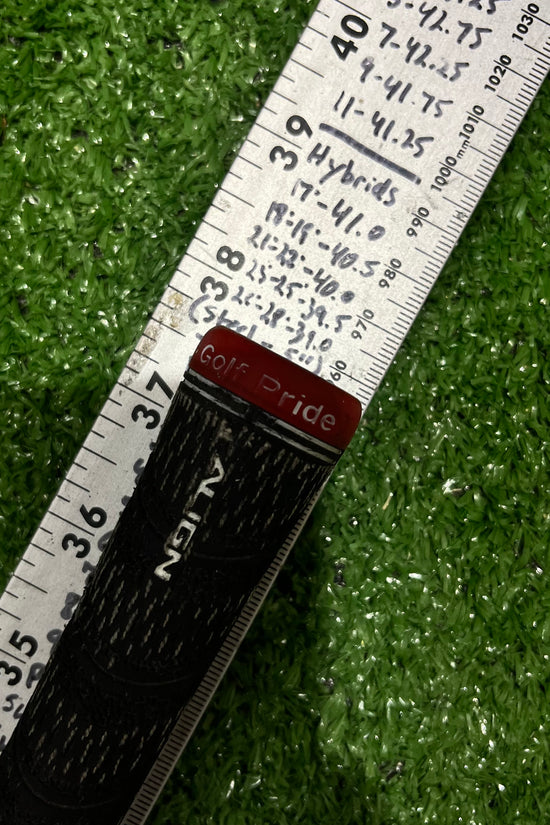 5-42.75
7-42.25
9-41.75
11-41.25
Hybrids
17-41.0
18-19-40.5
21-22-40.0
23-25-39.5
26-28-39.0
40
39
38
37
36
35
1030
1020
1010
1000mm
990
980
970
60
Golf Pride
ALIGN